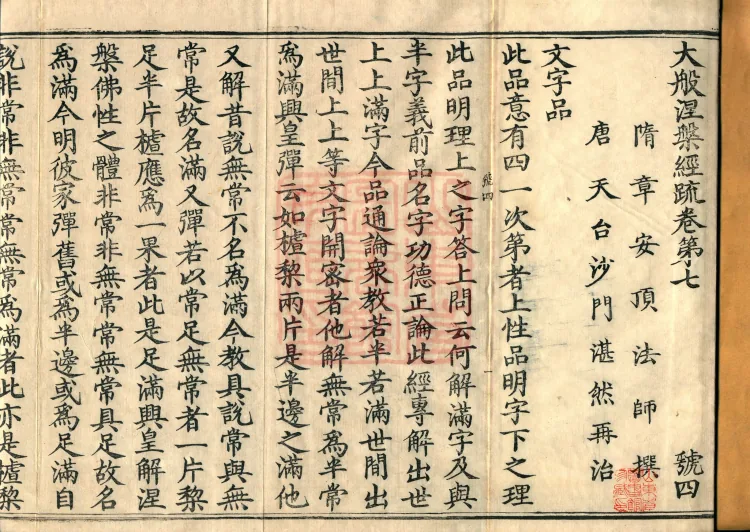 大般涅槃經䟽卷第七 號四
隋章安頂法師撰
唐天台沙門湛然再治
文字品
此品意有四一次第者上性品明字下之理
此品明理上之字答上問云何解滿字及與
半字義前品名字功德正論此經專解出世
上上滿字今品通論衆教若半若滿世間出
世間上上等文字開密者他解無常爲半常
爲滿興皇彈云如樝棃兩片是半邊之滿他
又解昔說無常不名爲滿今教具說常與無
常是故名滿又彈若以常足無常者一片棃
足半片樝應爲一果者此是足滿興皇解涅
槃佛性之體非常非無常常無常具足故名
爲滿今明彼家彈舊或爲半邊或爲足滿自
說非常非無常常無常爲滿者此亦是樝棃
號四